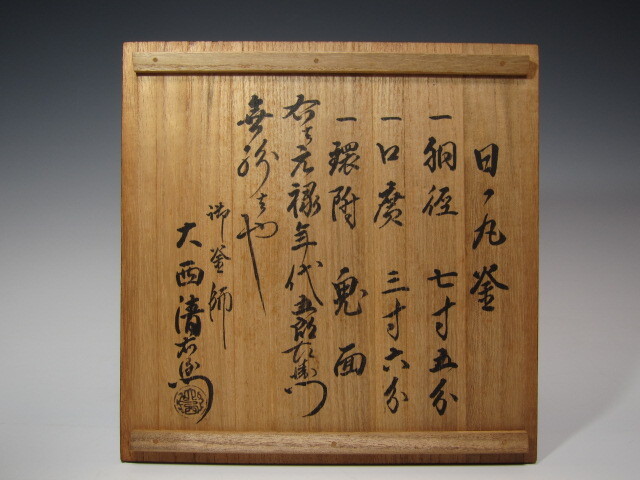 日ノ丸釜
一胴径 七寸五分
一口廣 三寸六分
一環附 鬼面
右者元禄年代五郎左衛門
無紛者也
御釜師
大西清右衛門